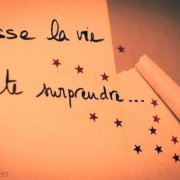 sse la vie
te surprendre...